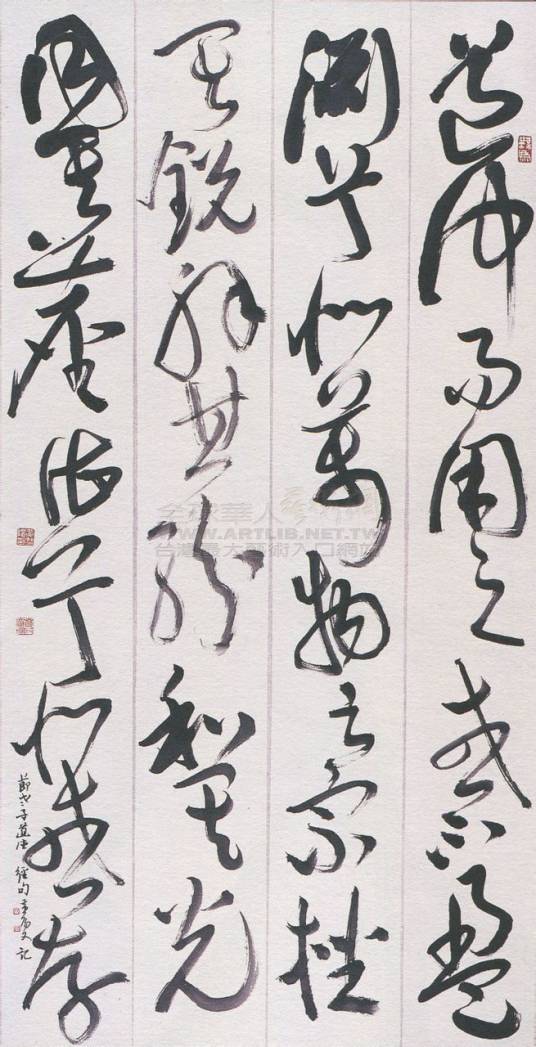 道沖而用之或不盈
淵兮似萬物之宗挫
其銳解其紛和其光
同其塵湛兮似或存
節老子道德經句 文記
全球華人藝術網
WWW.ARTLIB.NET.TW
台灣最大藝術入口網站